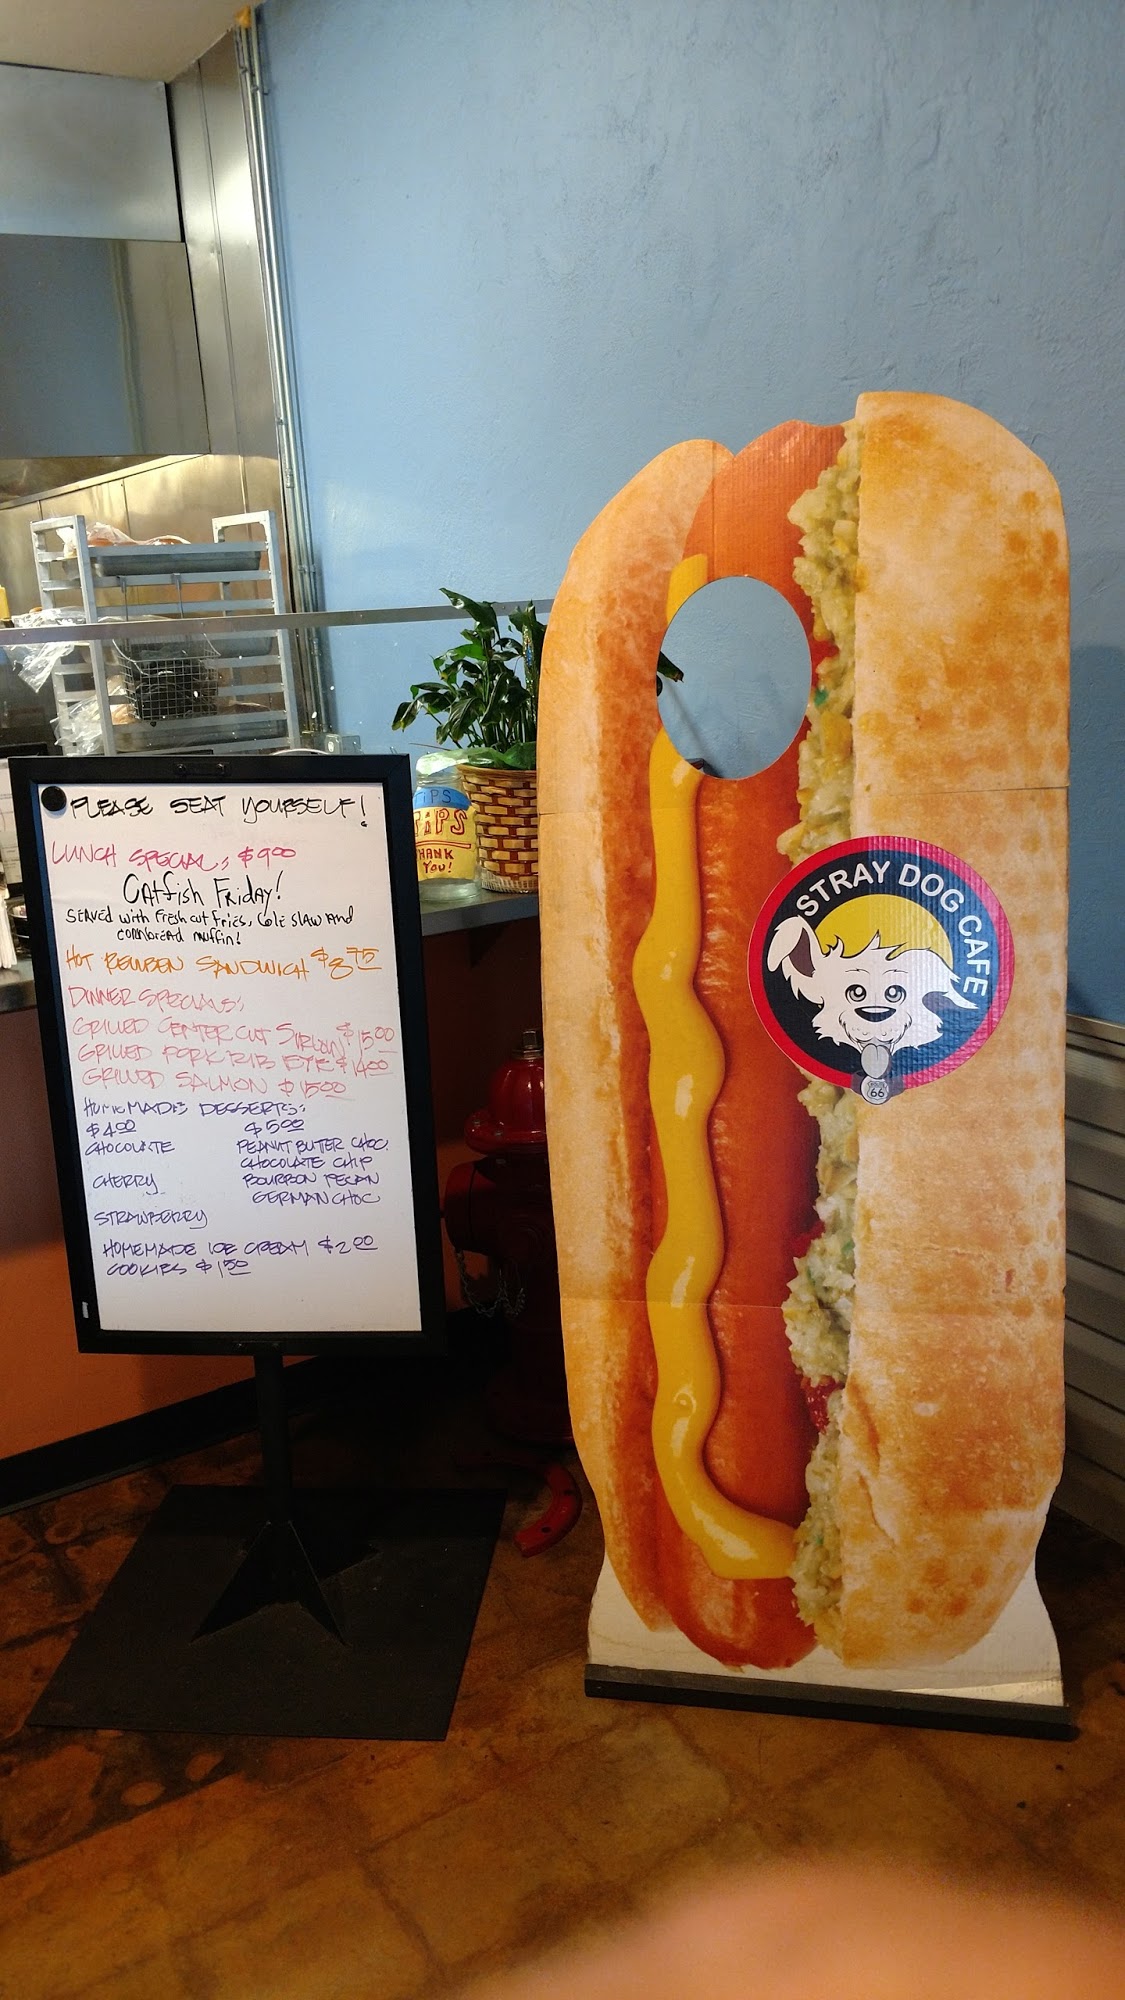 PLEASE SEAT YOURSELF!
LUNCH SPECIAL: $9.00
CATfish FRiDAY!
SERVED with FResh cut FRies, COlE SlAW AND
CORNbREAD muffin!
HOT REUBEN SANDWICH $8.75
DINNER SPECIALS:
GRILLED CENTER CUT SIRLOIN $15.00
GRILLED PORK RIB EYE $14.00
GRILLED SALMON $15.00
HOMEMADE DESSERTS:
$4.00 $5.00
CHOCOLATE PEANUT BUTTER CHOC.
CHOCOLATE CHIP
CHERRY BOURBON PECAN
GERMAN CHOC
STRAWBERRY
HOMEMADE ICE CREAM $2.00
COOKIES $1.50
TIPS
TIPS
THANK
YOU!
STRAY DOG CAFE
ROUTE
66